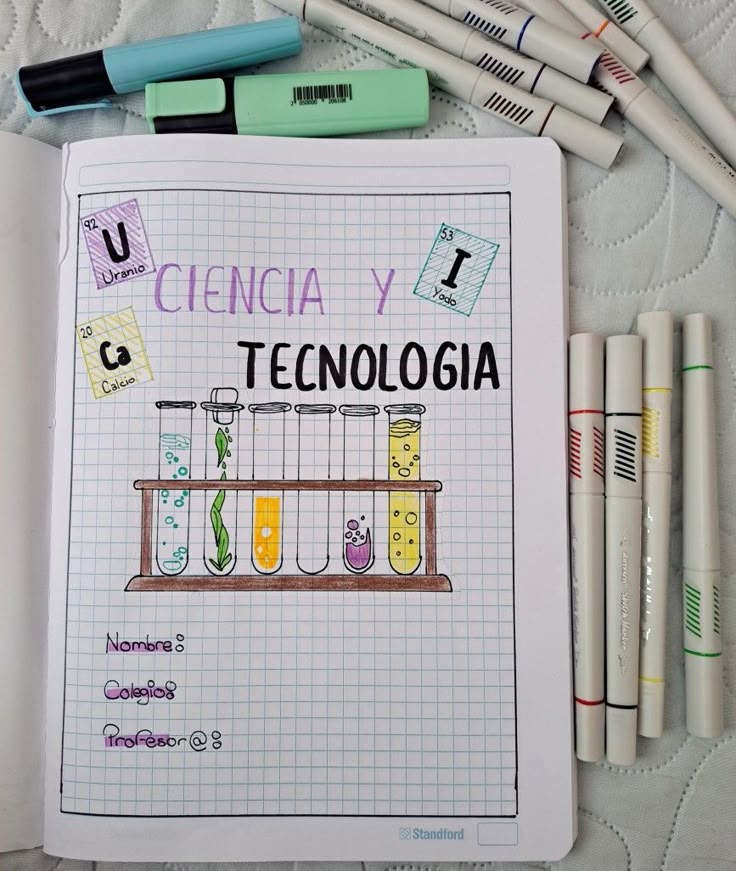 2 050000 206108
92
U
Uranio
53
I
Yodo
CIENCIA Y
20
Ca
Calcio
TECNOLOGIA
Nombre:
Colegio:
Profesor@:
Standford